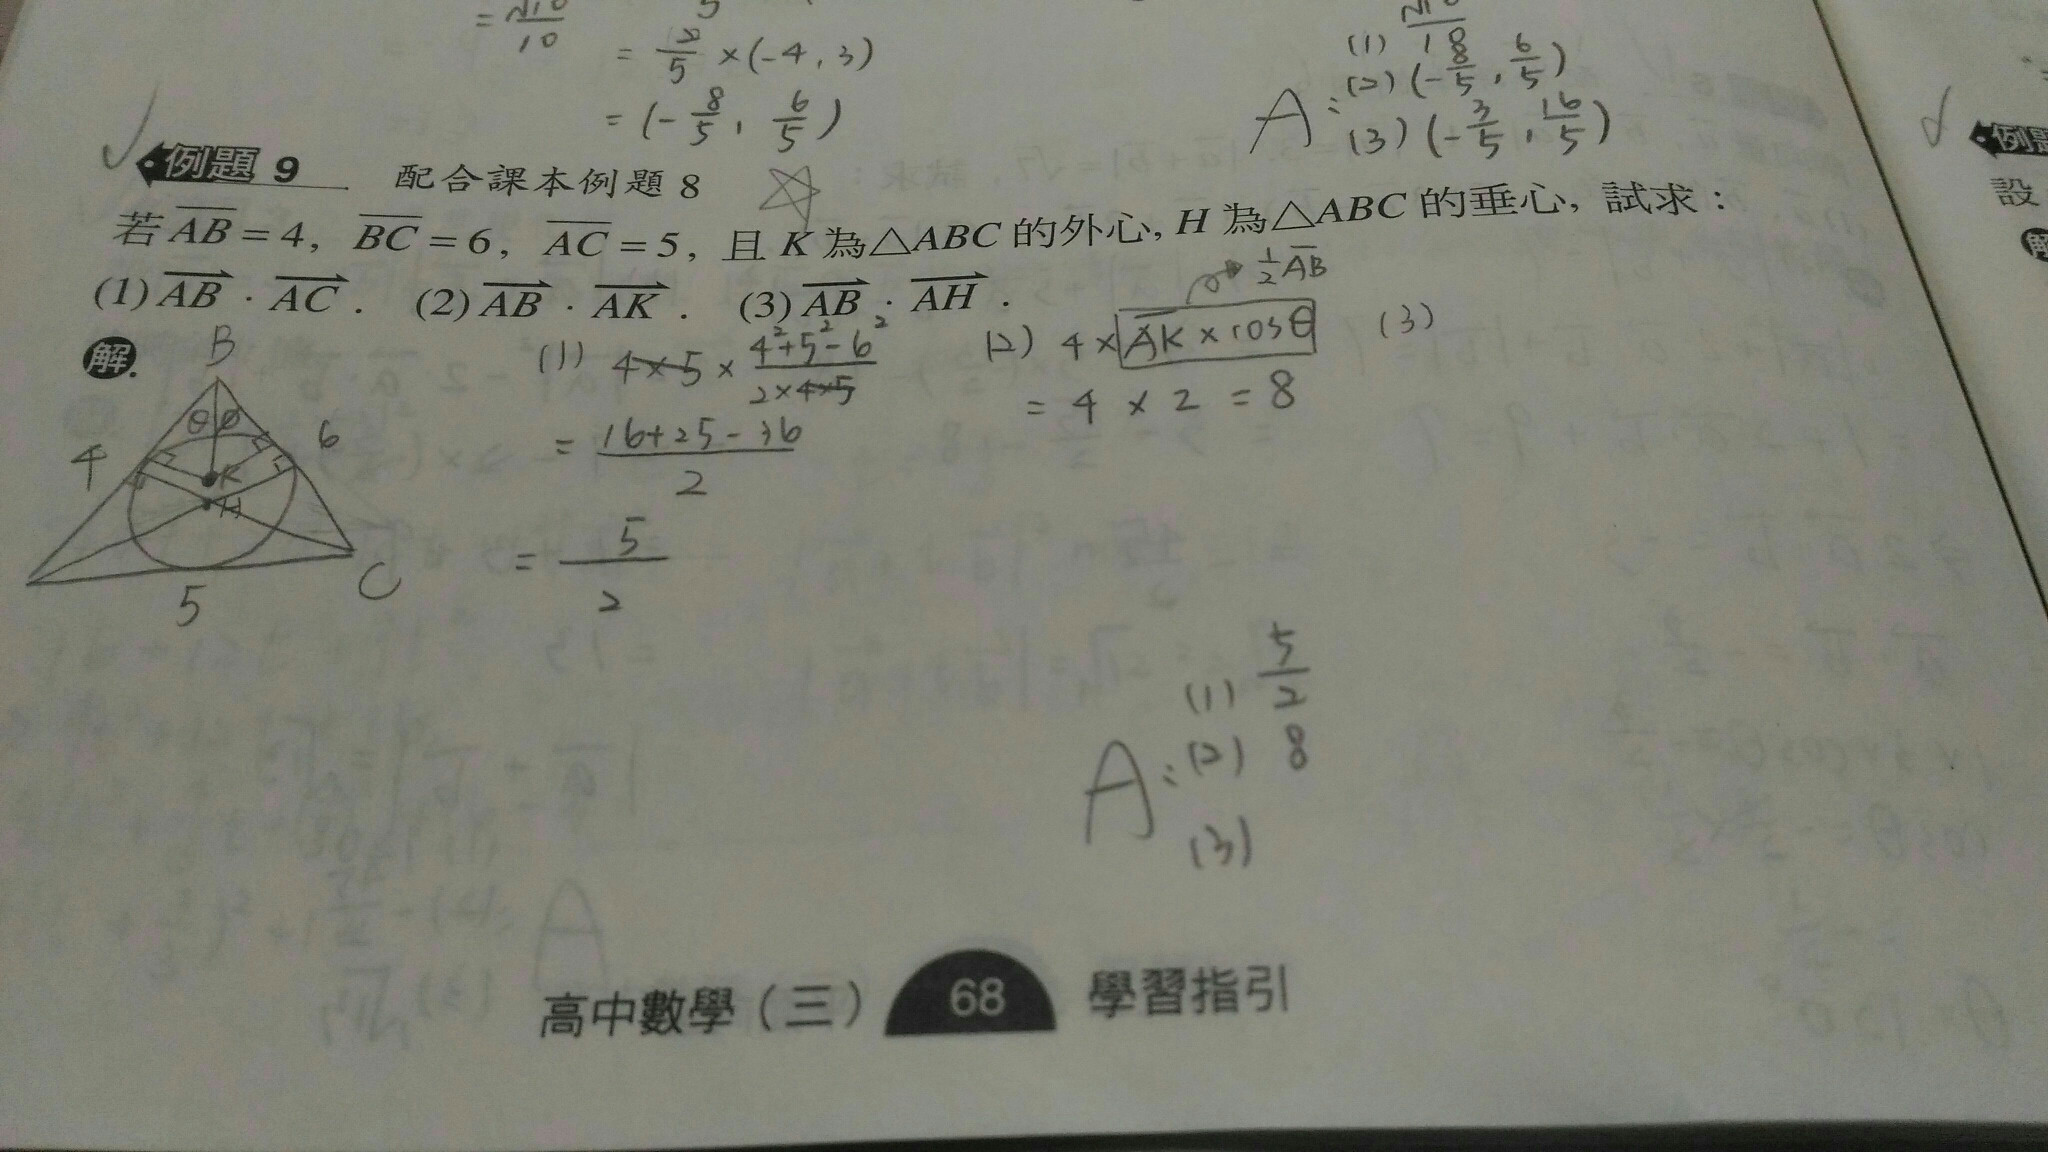 = √10/10
= 2/5 × (-4, 3)
= (-8/5, 6/5)
(1) √10/10
(2) (-8/5, 6/5)
A: (3) (-3/5, 16/5)
例題 9 配合課本例題 8
若 AB = 4, BC = 6, AC = 5, 且 K 為△ABC 的外心, H 為△ABC 的垂心, 試求：
(1) AB · AC . (2) AB · AK . (3) AB · AH .
1/2 AB
解.
B
θ
4
6
K
H
C
5
(1) 4×5 × (4²+5²-6²)/(2×4×5)
= (16+25-36)/2
= 5/2
(2) 4 × AK × cosθ
= 4 × 2 = 8
(3)
A: (1) 5/2
(2) 8
(3)
高中數學（三） 68 學習指引
例題
設